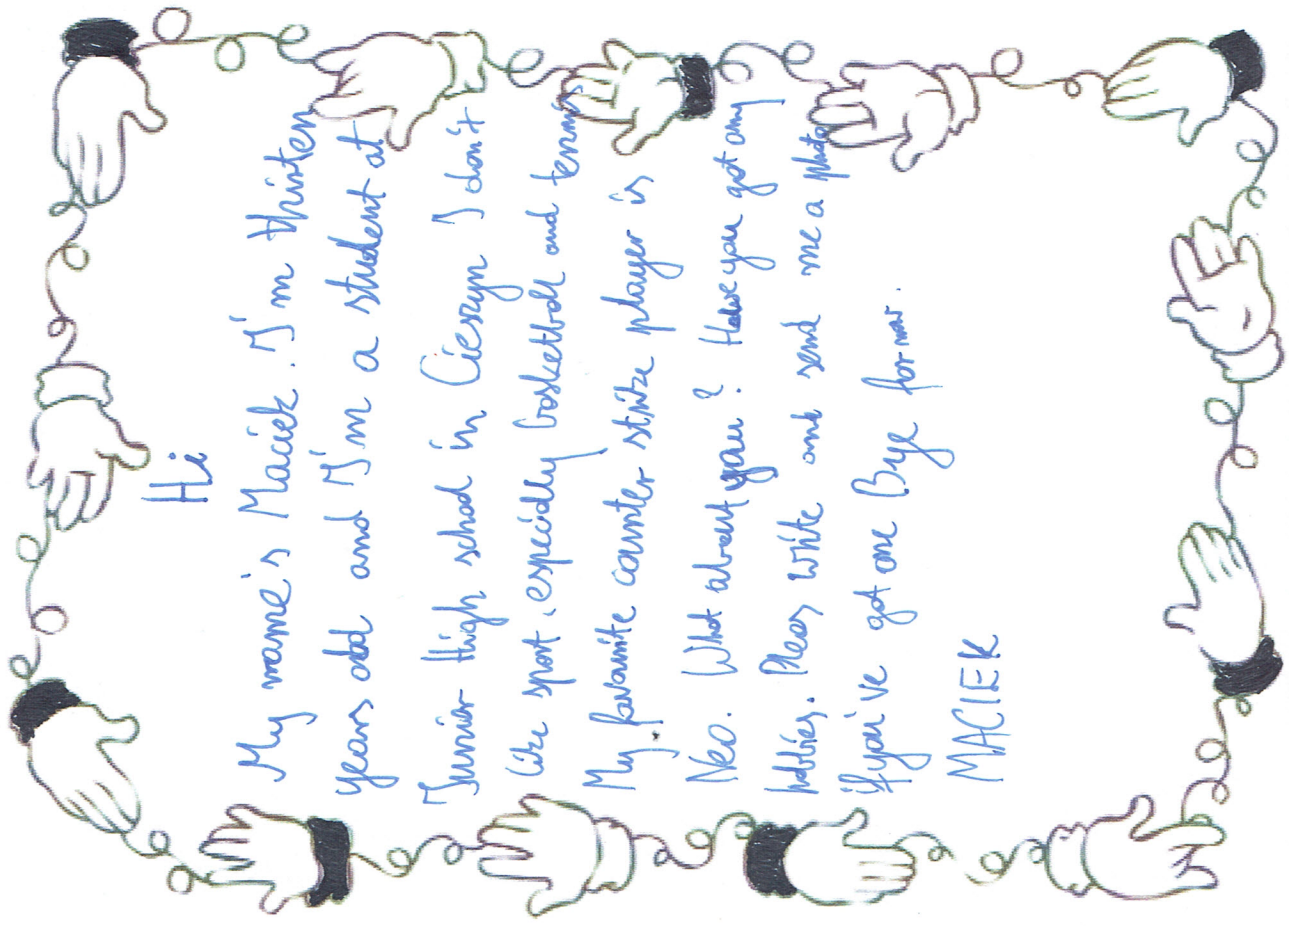 Hi
My name's Maciek. I'm thirten
years old and I'm a student at
Junior High school in Cieszyn I don't
like sport, especially basketball and tennis
My favourite counter strike player is
Neo. What about you? Have you got any
hobbies. Pleas write and send me a photo
if you've got one Bye for now.
MACIEK